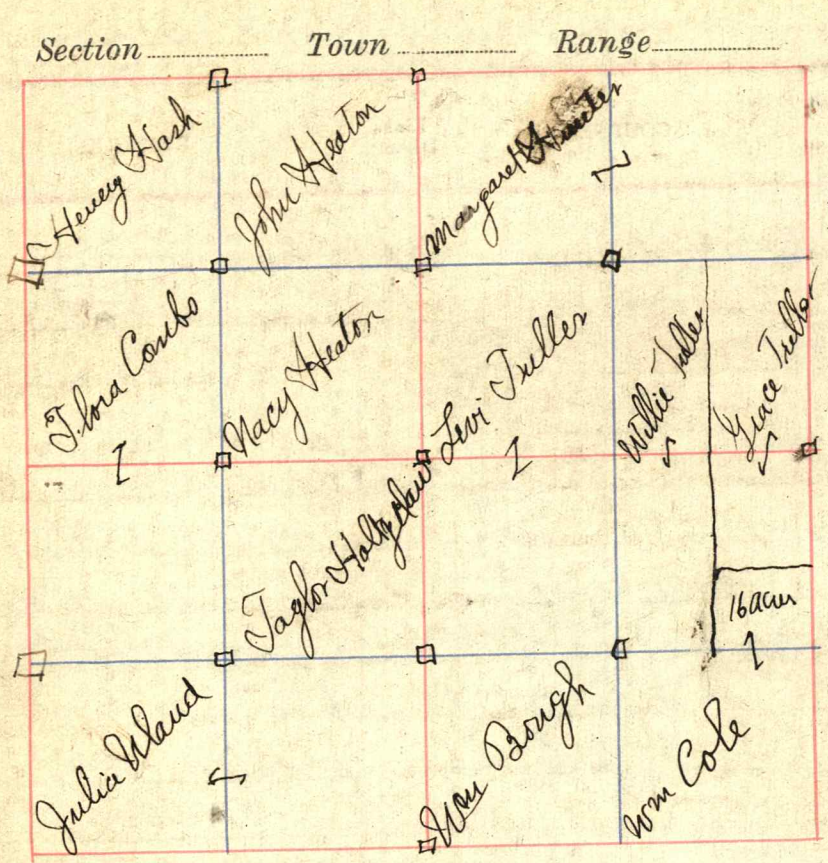 Section Town Range
Henery Hash
John Heaton
Margaret Hunter
Flora Combs
Nacy Heaton
Levi Tuller
Willie Tuller
Grace Tuller
Taylor Holtzclaw
16 acres
Julia
Wm Bough
Wm Cole